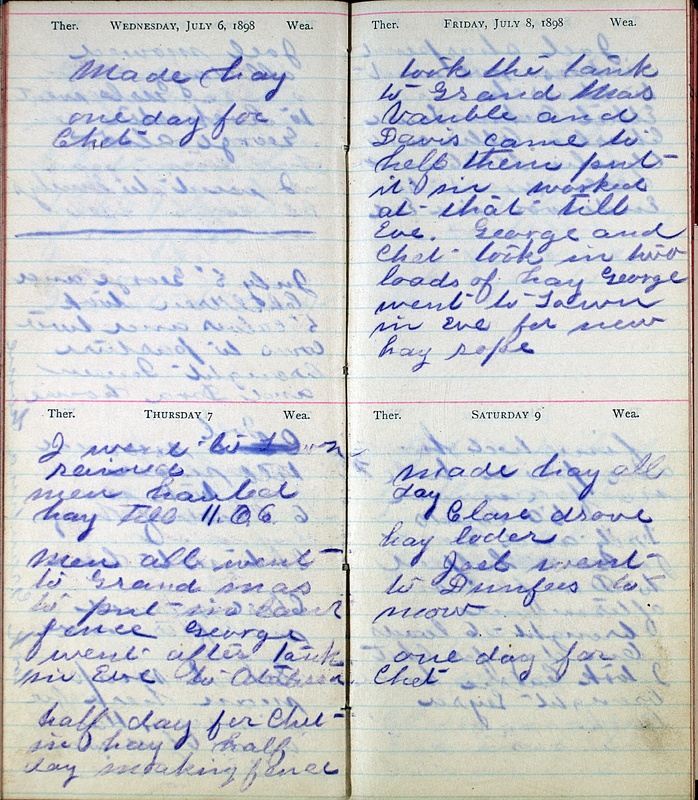 Ther. WEDNESDAY, JULY 6, 1898 Wea.
Made hay
one day for
Chet
Ther. THURSDAY 7 Wea.
I went to
rained
men hauled
hay till 11.06
Men all went
to Grand mas
to put in
fence George
went after Tank
in Eve to
half day for Chet
in hay half
day making fence
Ther. FRIDAY, JULY 8, 1898 Wea.
took the tank
to Grand Mas
Vauble and
Davis came to
help them put
it in worked
at that till
Eve. George and
Chet took in two
loads of hay George
went to Town
in Eve for new
hay rope
Ther. SATURDAY 9 Wea.
made hay all
day
Clare drove
hay loder
Joel went
to Dunfees to
mow
one day for
Chet